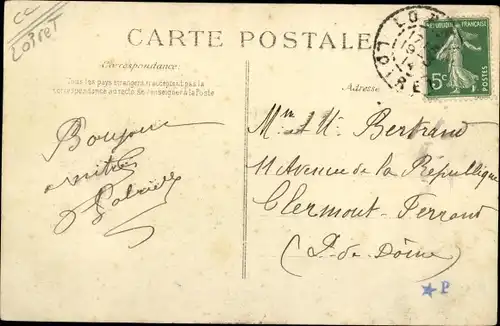 CC
Loiret
CARTE POSTALE
Correspondance:
Tous les pays étrangers n'acceptent pas la
correspondance au recto, de renseigner à la Poste
Adresse
REPUBLIQUE FRANÇAISE
5c
POSTES
LOIRET
Bonjour
amitiés
Gabrielle
Mr et Mme Bertrand
11 Avenue de la République
Clermont-Ferrand
(P-de-Dôme)
★P